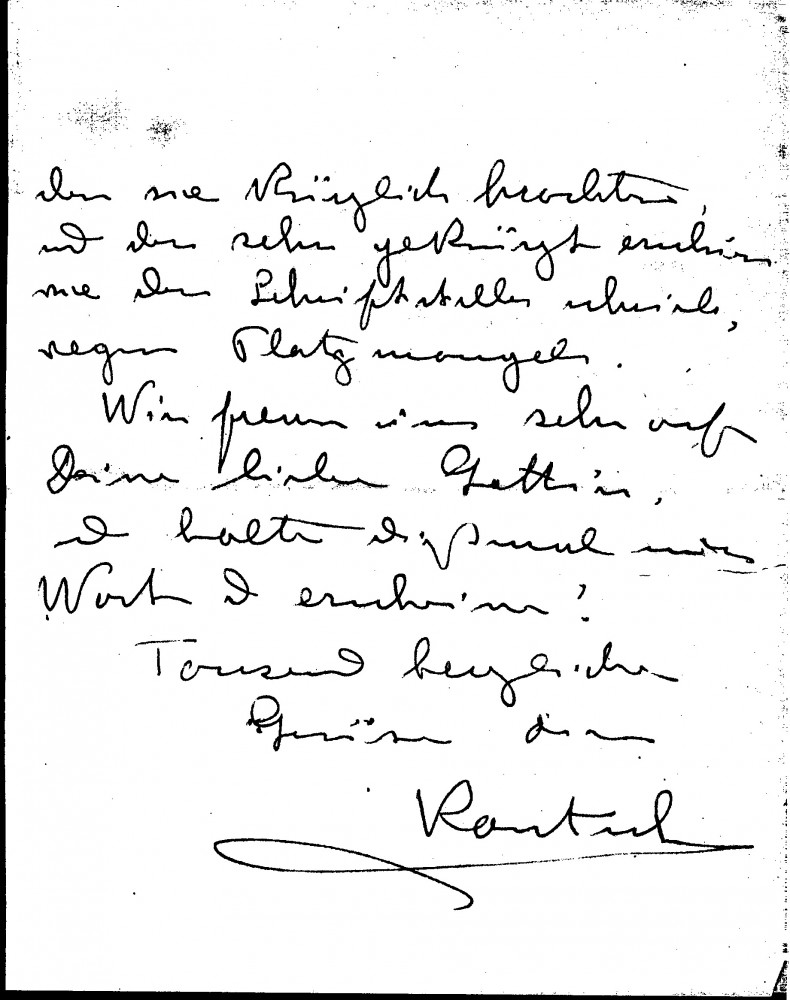 den sie kürzlich brachten,
und der sehr gekürzt erschien
wie der Schriftsteller schrieb,
wegen Platzmangels.
Wir freuen uns sehr auf
Deine liebe Gattin,
ich halte dißmal mein
Wort & erscheine!
Tausend herzliche
Grüße dein